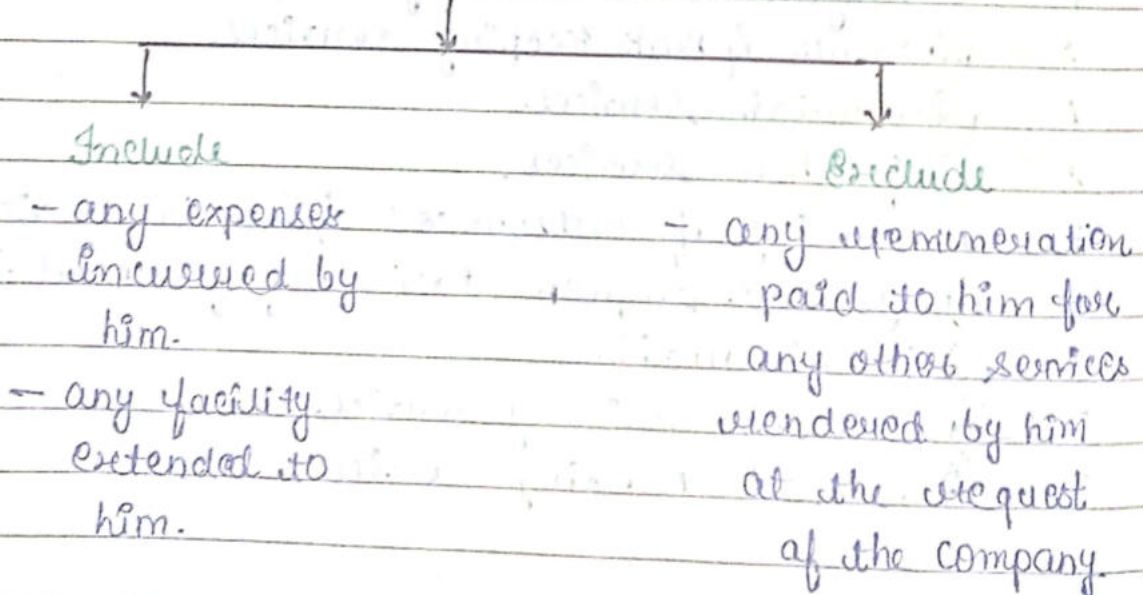 Include
- any expenses
incurred by
him.
- any facility
extended to
him.
Exclude
- any remuneration
paid to him for
any other services
rendered by him
at the request
of the company.